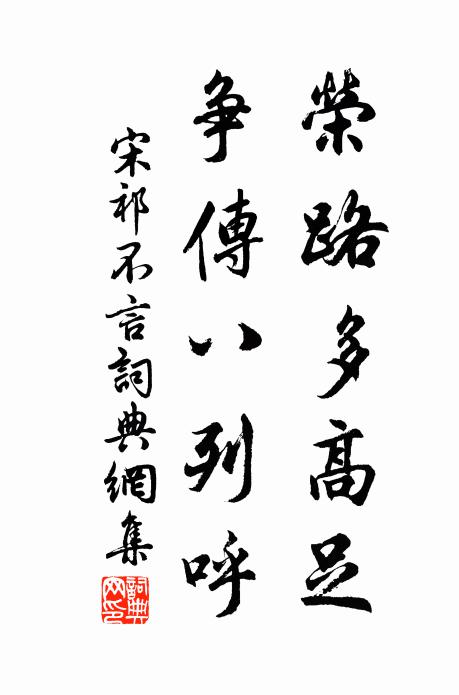 榮路多高足
争傳八列呼
宋祁不言詞典網集
詞典網印